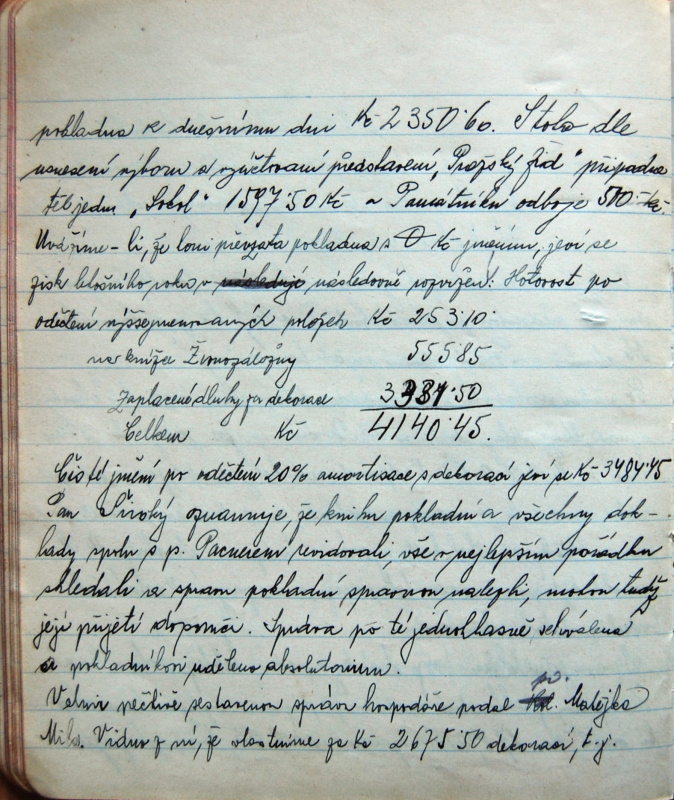 pokladna k dnešnímu dni Kč 2350·60. Z toho dle
usnesení výboru a vyúčtování představení „Pražský žid" připadne
těl. jedn. „Sokol" 1597·50 Kč a Památníku odboje 500 Kč.
Uvážíme-li, že loni převzata pokladna s 0 Kč jměním, jeví se
zisk letošního roku v následovně rozvržen: Hotovost po
odečtení výšejmenovaných položek Kč 253·10
na knížce Živnozáložny 555 85
Zaplacené dluhy za dekorace 3331·50
Celkem Kč 4140·45.
Čisté jmění po odečtení 20% amortisace s dekorací jeví se Kč 3484·45
Pan Široký oznamuje, že knihu pokladní a všechny dok-
lady spolu s p. revidovali, vše v nejlepším pořádku
shledali a správu pokladní správnou nalezli, mohou tudíž
její přijetí doporuči. Zpráva po té jednohlasně schválena
a pokladníkovi uděleno absolutorium.
Velmi pečlivě sestavenou zprávu hospodáře podal Matějka
Mil. Vidno z ní, že vlastníme za Kč 2675 50 dekorací, t. j.